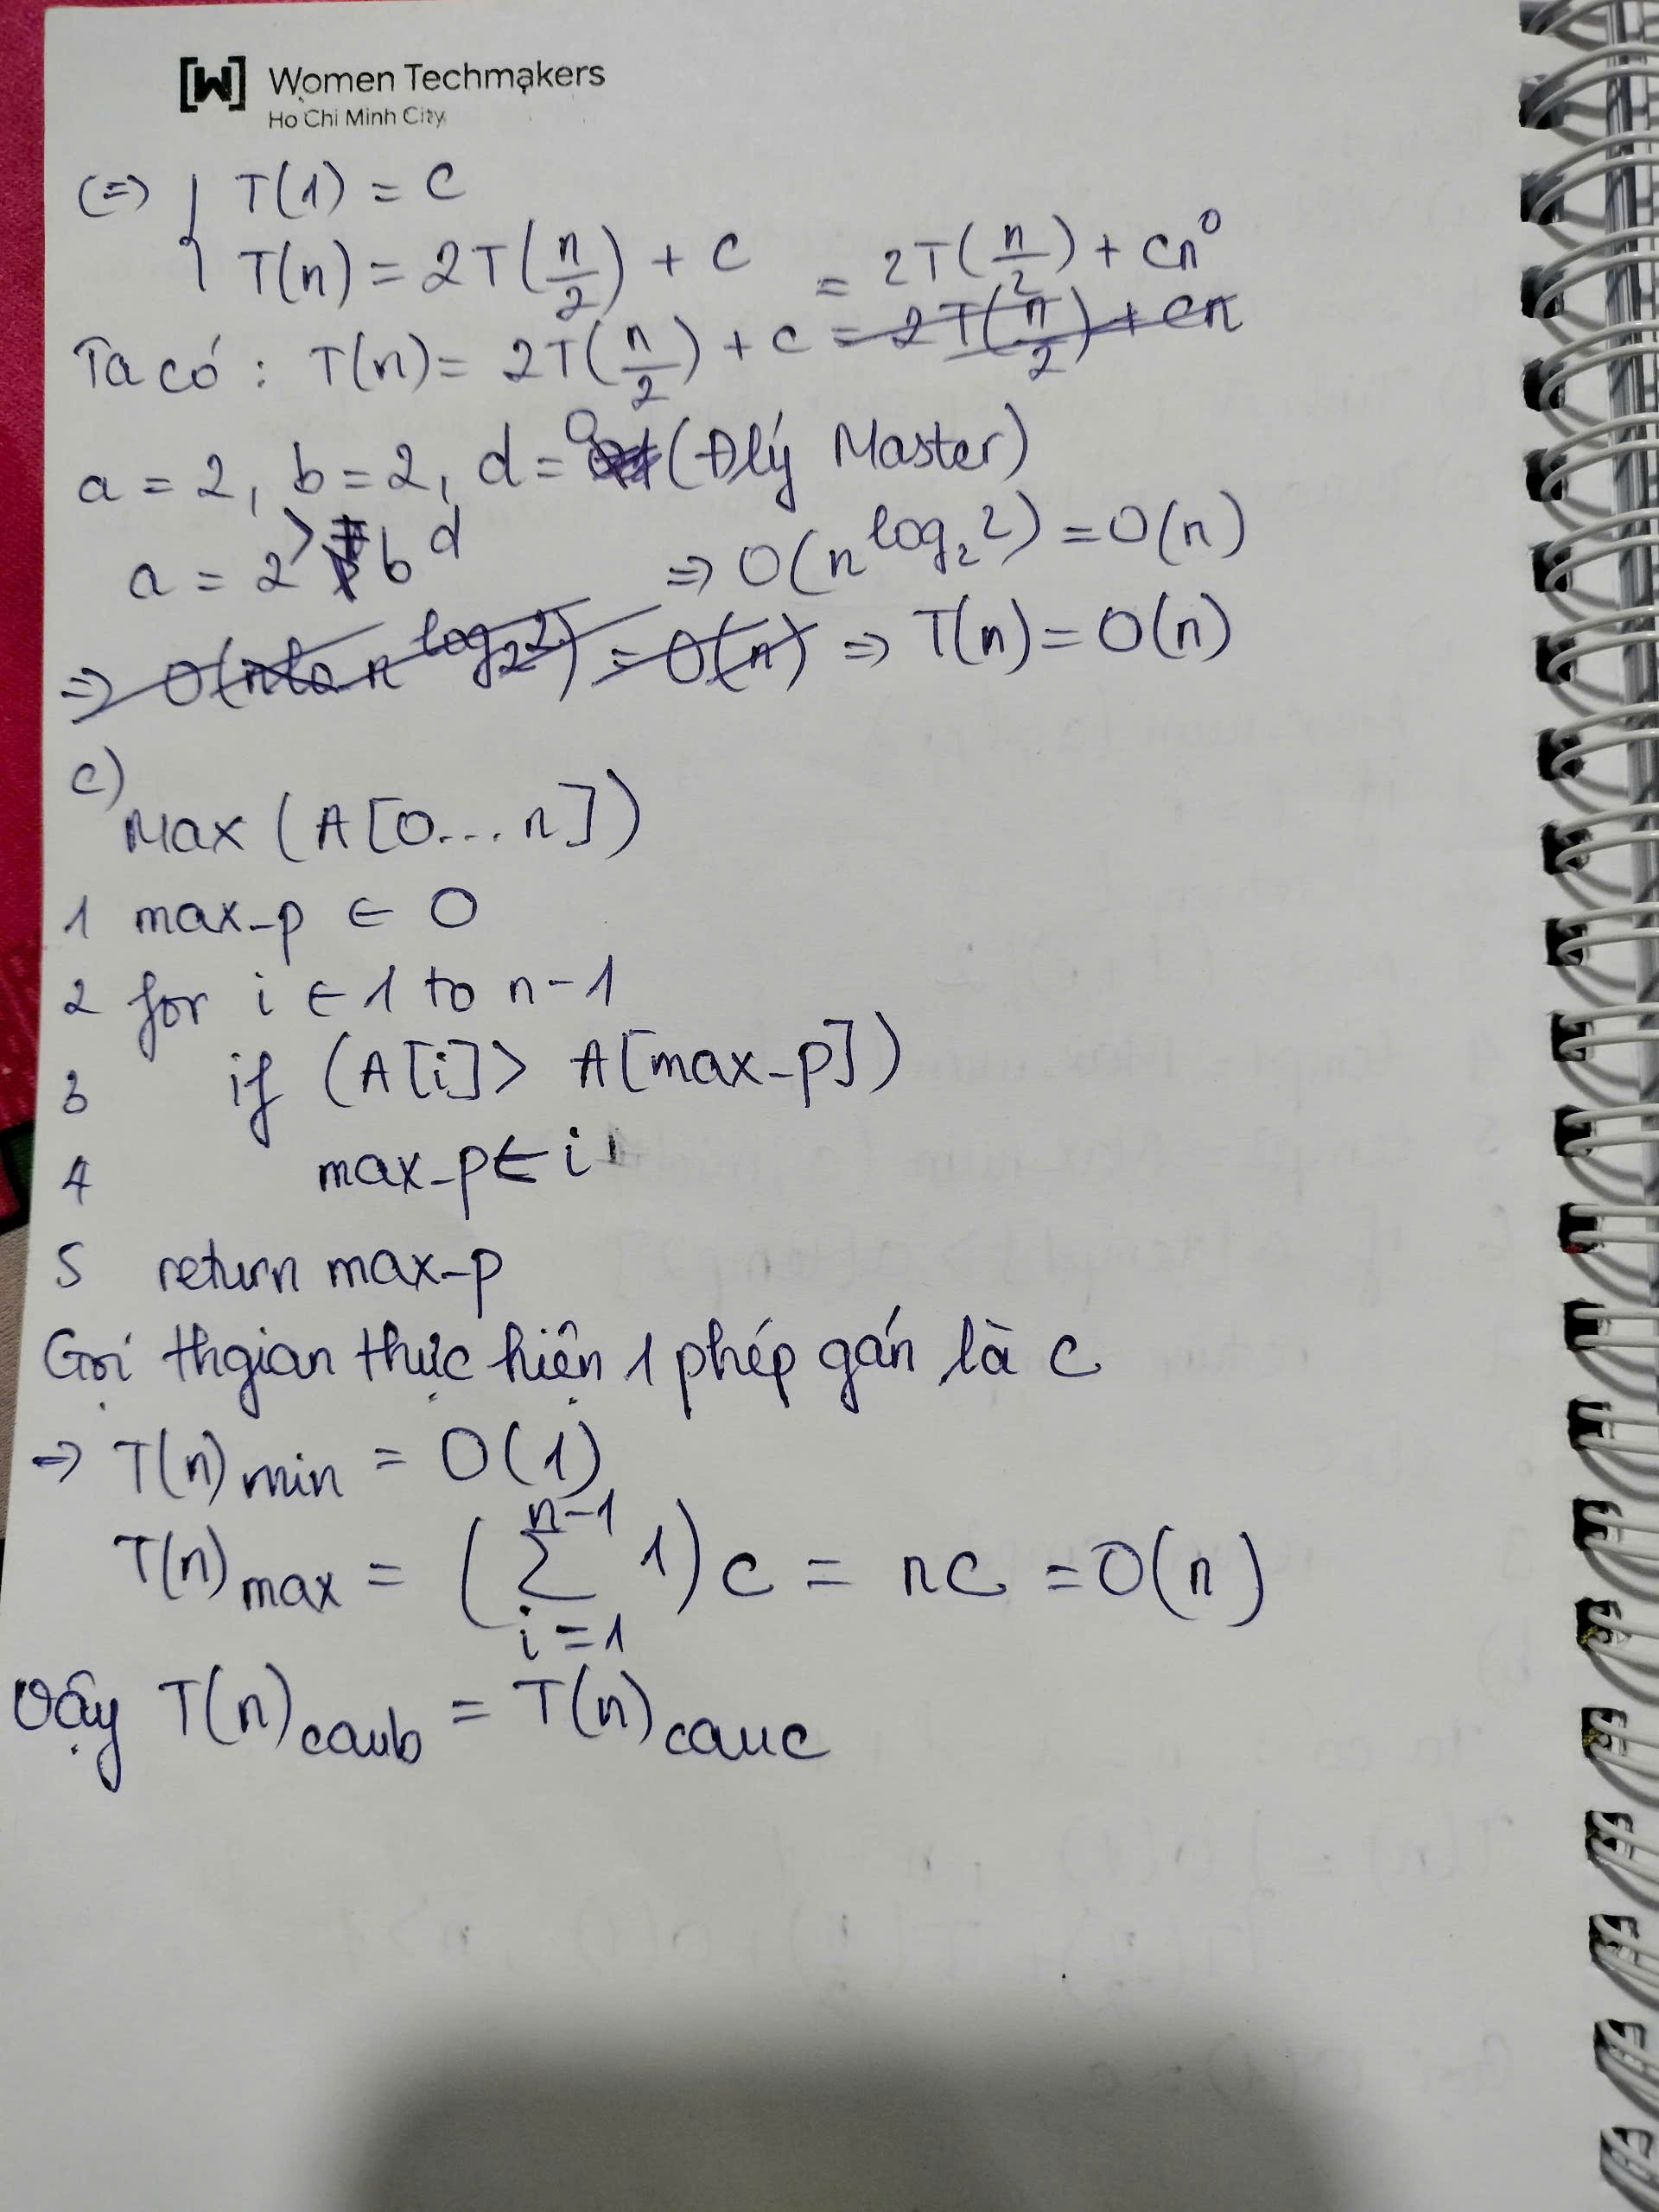 [W] Women Techmakers
Ho Chi Minh City
(=) { T(1) = C
T(n) = 2T(n/2) + C = 2T(n/2) + Cn⁰
Ta có : T(n) = 2T(n/2) + C = 2T(n/2) + Cn
a = 2, b = 2, d = 0 (Đlý Master)
a = 2 > b^d => O(n^log₂2) = O(n)
=> O(n^log₂2) = O(n) => T(n) = O(n)
c)
Max (A[0...n])
1 max_p ← 0
2 for i ← 1 to n-1
3 if (A[i] > A[max_p])
4 max_p ← i
5 return max_p
Gọi thgian thực hiện 1 phép gán là c
=> T(n) min = O(1)
T(n) max = (∑_{i=1}^{n-1} 1) C = nC = O(n)
Vậy T(n) caub = T(n) cauc